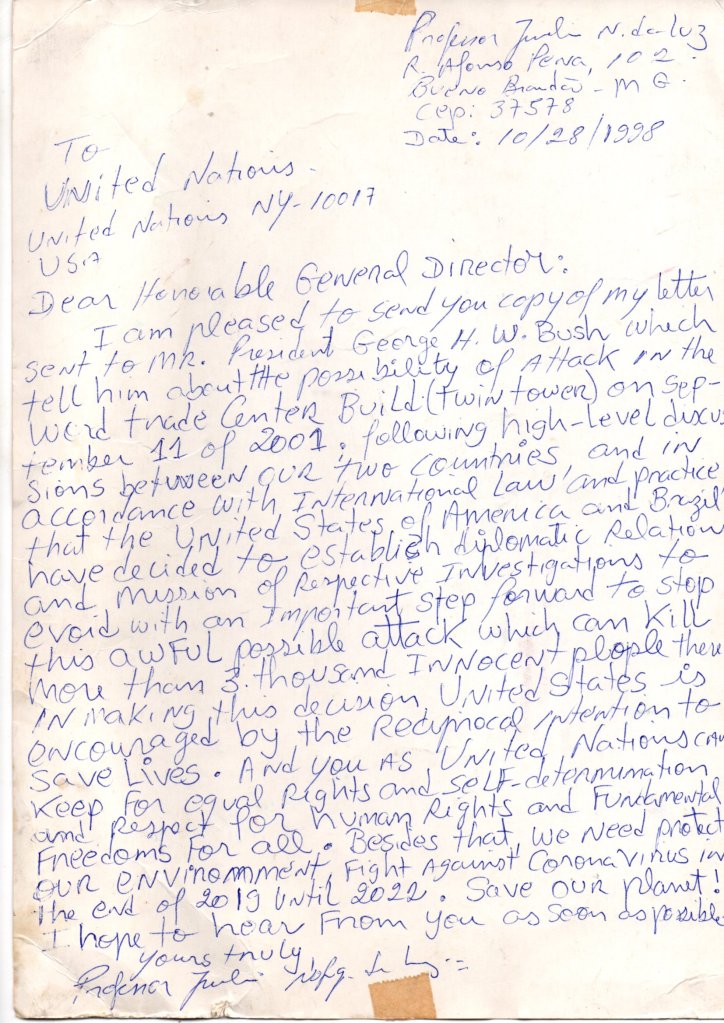 Professor N. da Luz
R. Afonso Pena, 102
Bueno Brandão - MG.
Cep: 37578
Date: 10/28/1998
To
United Nations.
United Nations NY-10017
USA
Dear Honorable General Director:
I am pleased to send you copy of my letter
sent to Mr. President George H. W. Bush which
tell him about the possibility of Attack in the
World trade Center Build (Twin tower) on Sep-
tember 11 of 2001, following high-level discus
sions between our two countries, and in
accordance with International Law, and practice
that the United States of America and Brazil
have decided to establish diplomatic Relation
and mission of Respective Investigations to
evoid with an Important step forward to stop
this awful possible attack which can Kill
more than 3. thousand Innocent plople there
In making this decision, United States is
encouraged by the Reciprocal intention to
save Lives. And you As United Nations can
Keep For equal Rights and self-determination,
and Respect for human Rights and Fundamental
Freedoms For all. Besides that, we need protect
our environmment, Fight Against Coronavirus in
the end of 2019 until 2022. Save our planet!
I hope to hear From you as soon as possible
yours truly,
Professor